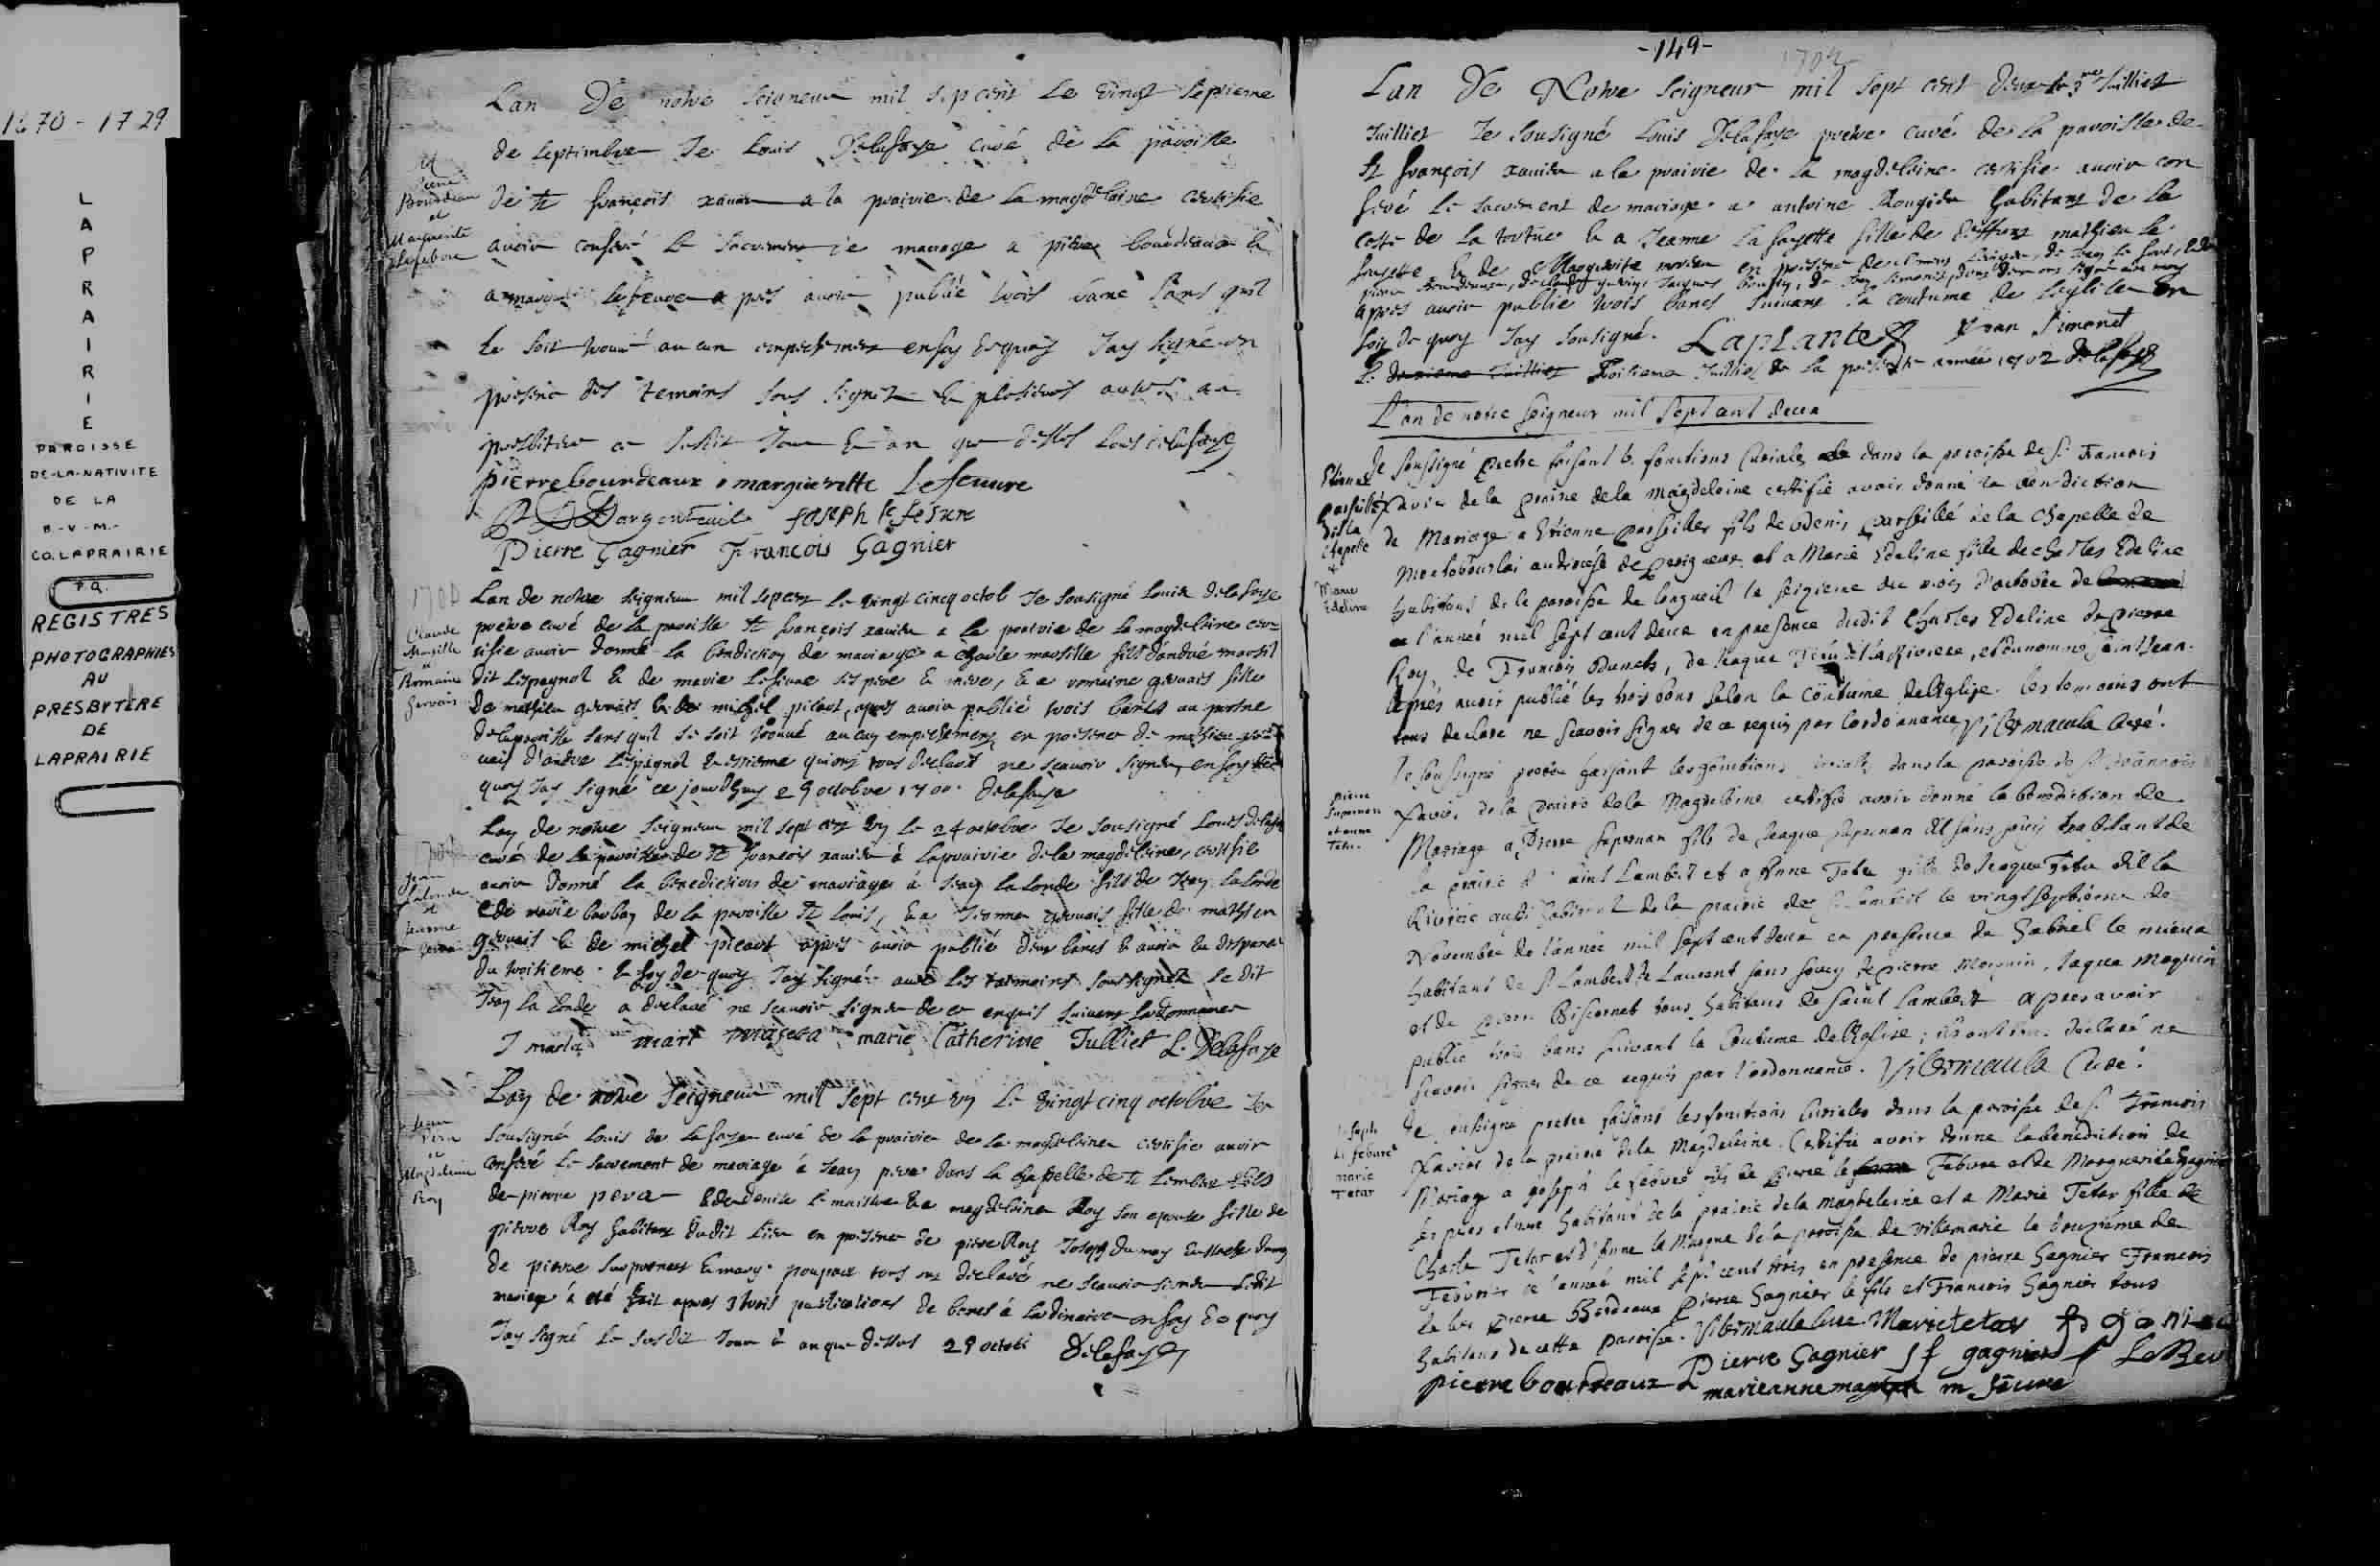 1670-1729
LAPRAIRIE
PAROISSE
DE-LA-NATIVITE
DE LA
B.-V-M.-
CO. LAPRAIRIE
P.Q.
REGISTRES
PHOTOGRAPHIES
AU
PRESBYTERE
DE
LAPRAIRIE
Lan De notre Seigneur mil sept cent Le Vingt septieme
de septembre Je Louis Delafaye curé de La paroisse
Pierre
Bourdeau
et
Marguerite
Lefebvre
de st françois xavier a la prairie de la magdeleine certifie
avoir conferé le sacrement de mariage a pierre bourdeaux &
a marg lefeuvre apres avoir publié trois banc sans quil
se soit trouvé aucun empechement en foy dequoy Jay signé en
presence des temoins sous signez & plusieurs autres au
presbitere ce susdit Jour & an que dessus Louis delafaye
pierre bourdeaux margueritte Lefeuvre
Dargenteuil Joseph le febure
Pierre Gagnier François Gagnier
Lan de notre seigneur mil sept cent le vingt cinq octob Je sousigné Louis delafaye
Claude
Marsille
et
Romaine
Gervais
pretre curé de la paroisse st françois xavier a la prairie de la magdeleine cer-
tifie avoir donné la benediction de mariage a Charle marsille fils d'andré marsil
dit Lespagnol & de marie Lefeure ses pere & mere, & a romaine gervais fille
de mathieu gervais & de michel picaut, apres avoir publié trois bancs au prosne
de la paroisse sans quil se soit trouvé aucun empechement en presence de mathieu ger
vais d'andre Lespagnol qui ont tous declaré ne scavoir signer, en foy de
quoy Jay signé ce jourdhuy 29 octobre 1700. delafaye
Lan de notre seigneur mil sept cent un le 24 octobre Je sousigné Louis delafaye
curé de la paroisse de st françois xavier à Laprairie de la magdeleine, certifie
Jean
Lalonde
et
Jeanne
Gervais
avoir donné la benediction de mariage à Jean lalonde fils de Jean lalonde
& de marie barban de la paroisse st Louis, & a Jeanne gervais fille de mathieu
gervais & de michel picaut apres avoir publié deux bancs & avoir eu dispence
du troisieme. En foy de quoy Jay signé avec les temoins soussignez le dit
Jean la londe a declaré ne scavoir signer de ce enquis suivant Lordonnance
marie Catherine Julliet L. Delafaye
Lan de notre Seigneur mil sept cent un le vingt cinq octobre Je
sousigné Louis de Lafaye curé de la prairie de la magdeleine certifie avoir
Magdeleine
Roy
conferé le sacrement de mariage à Jean pera dans la chapelle de st Lambert fils
de pierre pera & de denise le maistre & a magdeleine Roy son epouse fille de
pierre Roy habitant dudit lieu en presence de pierre Roy Joseph dumay
de pierre & marg poupart tous ont declaré ne scavoir signer Ledit
mariage à eté fait apres 3 trois publications de bancs à Lordinaire en foy de quoy
Jay signé le susdit Jour & an que dessus 29 octob Delafaye
-149-
1702
Lan De Notre Seigneur mil sept cent deux le 3me Juilliet
Juilliet Je sousigné Louis Delafaye pretre curé de la paroisse de
st françois xavier a la prairie de la magdeleine certifie avoir con
feré le sacrement de mariage a antoine Rougier habitant de la
coste de la tortue & a Jeanne La fayette fille de deffunt mathieu la
fayette & de Marguerite
apres avoir publié trois bancs suivant la coutume de Leglise En
foy de quoy Jay sousigné. LapLante Jean Simonet
Le deuxieme Juilliet Troisieme Juilliet de la presente année 1702 delafaye
L'an de notre Seigneur mil sept cent deux
Je soussigné Pretre faisant les fonctions Curiales dans la paroisse de St. Francois
Etienne
dit la
chapelle
et
Marie
Edeline
Xavier de la prairie de la Magdeleine certifie avoir donné la bendiction
de Mariage a Etienne fils de denis de la Chapelle de
au diocese de Perigueux et a Marie Edeline fille de charles Edeline
habitant de la paroisse de longueil le seizieme du mois d'octobre de
l'année mil sept cent deux en presence dudit Charles Edeline de pierre
Roy, de Francois
Apres avoir publié les trois bans selon la Coutume de l'Eglise. les temoins ont
tous declaré ne scavoir signer de ce requis par l'ordonnance, Vilermaula curé.
Je soussigné pretre faisant les fonctions curiales dans la paroisse de St francois
Pierre
Supernon
et anne
Teste
Xavier de la prairie de la Magdeleine certifie avoir donné la benediction de
Mariage a Pierre Supernan fils de Jaque Supernan dit sans souci habitant de
la prairie de saint Lambert et a Anne fille de Jaque dit la
Riviere aussi habitant de la prairie de St Lambert le vingt septieme de
Novembre de l'année mil sept cent deux en presence de Gabriel le mieux
habitant de St Lambert de Laurent sans soucy de pierre Moquin, Jaque Moquin
et de pierre Bisconnet tous habitans de Saint Lambert apres avoir
publié trois bans suivant la Coutume de l'Eglise; ils ont tous declaré ne
scavoir signer de ce requis par l'ordonnance. Vilermaula Curé.
Je sousigné pretre faisant les fonctions Curiales dans la paroisse de St. Francois
Joseph
Le febure
marie
Tetar
Xavier de la prairie de la Magdeleine. Certifie avoir donné la benediction de
Mariage a joseph le febvre fils de pierre le Febvre et de Marguerite gagnier
ses pere et mere habitans de la prairie de la magdeleine et a Marie Tetar fille de
Charle Tetar et d'Anne le Maigne de la paroisse de villemarie le douzieme de
Fevrier de l'année mil sept cent trois en presence de pierre Gagnier Francois
le ber pierre Bordeaux Pierre Gagnier le fils et Francois Gagnier tous
habitans de cette paroisse. Vilermaula Cure Marie tetar
Pierre Gagnier gagnier LeBer
pierre bourdeaux marieanne